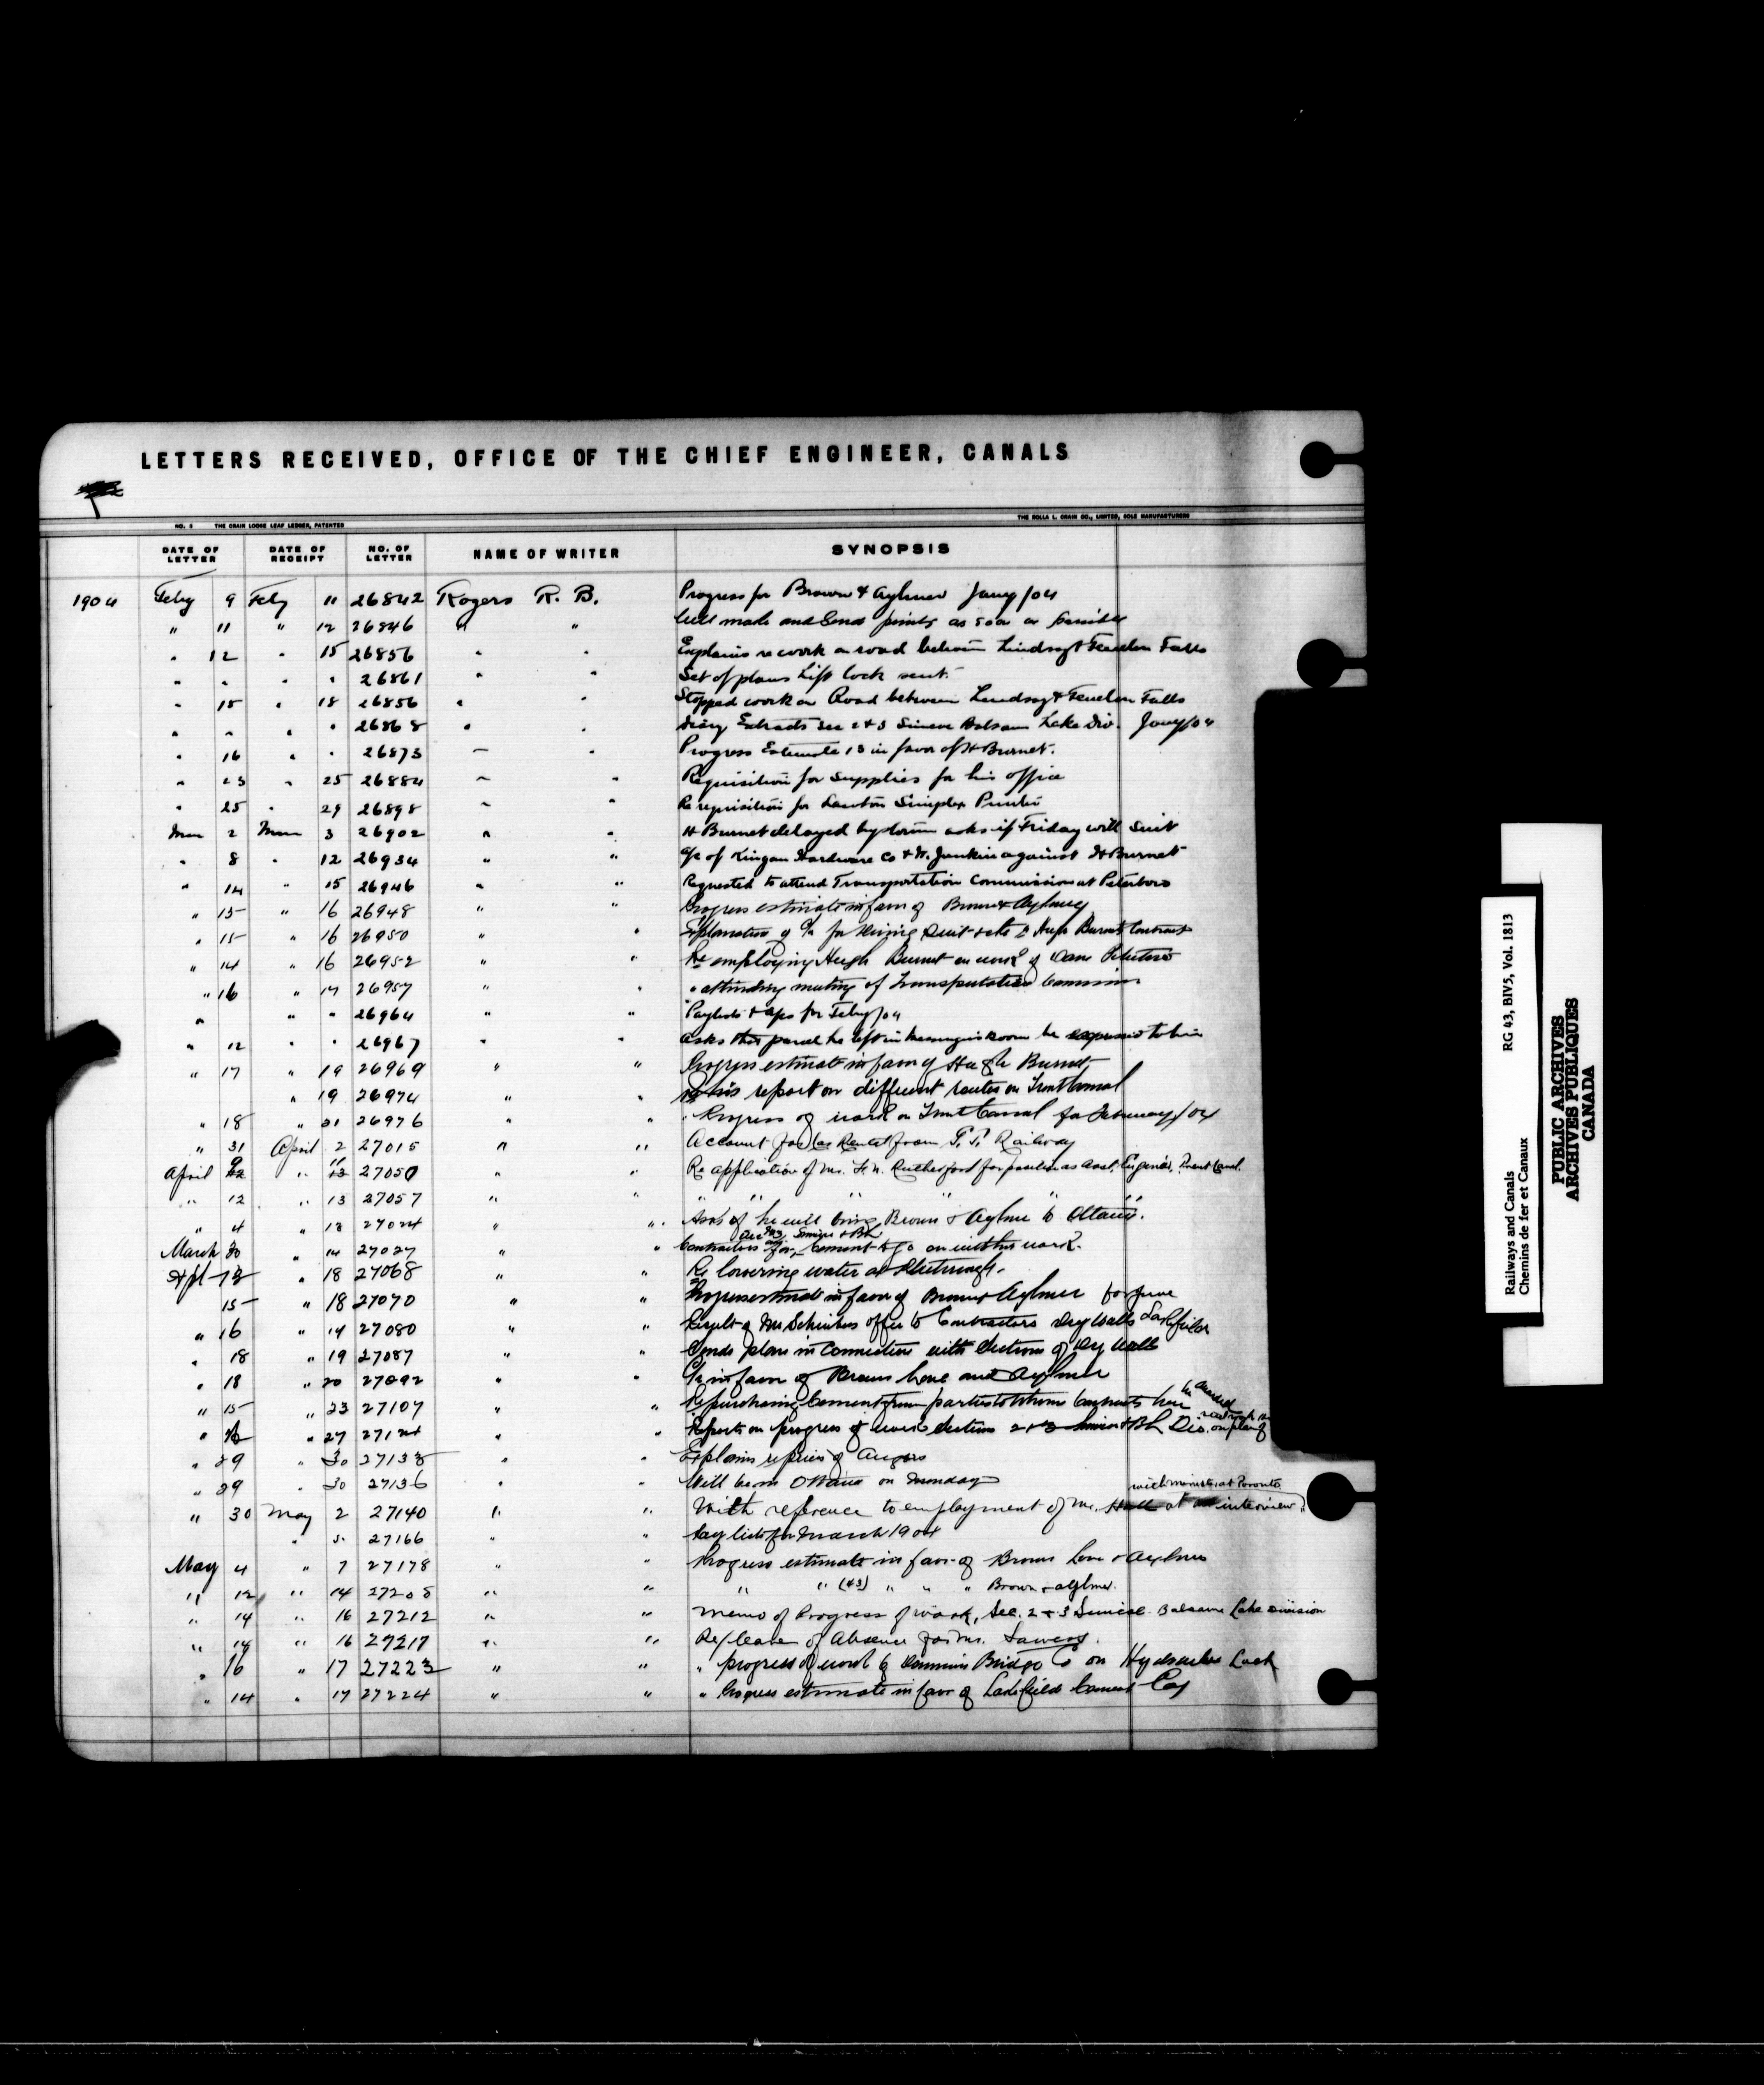 LETTERS RECEIVED, OFFICE OF THE CHIEF ENGINEER, CANALS
NO. 5 THE CRAIN LOOSE LEAF LEDGER, PATENTED
THE ROLLA L. CRAIN CO., LIMITED, SOLE MANUFACTURERS
DATE OF LETTER DATE OF RECEIPT NO. OF LETTER NAME OF WRITER SYNOPSIS
1904 Feby 9 Feby 11 26842 Rogers R. B. Progress for Brown & Aylmer Jany/04
" 11 " 12 26846 " " Will made and Send prints as soon as possible
" 12 " 15 26856 " " Explains re work on road between Lindsay & Fenelon Falls
" " " " 26861 " " Set of plans Lift lock sent.
" 15 " 18 26856 " " Stopped work on Road between Lindsay & Fenelon Falls
" " " " 26868 " " Diary Extracts Sec 2 & 3 Simcoe Balsam Lake Div. Jany/04
" 16 " " 26873 " " Progress Estimate 13 in favor of H Burnet.
" 23 " 25 26884 " " Requisition for Supplies for his office
" 25 " 29 26898 " " Re requisition for Lawton Simplex Printer
Mar 2 Mar 3 26902 " " H Burnet delayed by storm asks if Friday will Suit
" 8 " 12 26934 " " a/c of Kingan Hardware Co & W. Junkin against H Burnet
" 14 " 15 26946 " " Requested to attend Transportation Commission at Peterboro
" 15 " 16 26948 " " Progress estimate in favor of Brown & Aylmer
" 15 " 16 26950 " " Explanation of a/c for Hugh Burnet Contract
" 14 " 16 26952 " " Re employing Hugh Burnet on work of Dam
" 16 " 17 26957 " " " attending meeting of Transportation Commission
" " " 26964 " " Paylists & a/cs for Feby/04
" 12 " " 26967 " " Asks that parcel he left in messengers room be expressed to him
" 17 " 19 26969 " " Progress estimate in favor of Hugh Burnet
" 19 26974 " " Re his report on different routes on Trent Canal
" 18 " 21 26976 " " " Progress of work on Trent Canal for February/04
" 31 April 2 27015 " " Account for Rental from G. T. Railway
April 9 " 11 27050 " " Re application of Mr. Rutherford for position as Asst. Engineer, Trent Canal.
" 12 " 13 27057 " " " " " " "
" 4 " 18 27024 " " Asks if he will bring Brown & Aylmer to Ottawa.
March 30 " 14 27027 " " Contractors Sec 2 & 3 Simcoe & BL for cement to go on with his work.
Apl 13 " 18 27068 " " Re lowering water at
15 " 18 27070 " " Progress estimate in favor of Brown & Aylmer
" 16 " 19 27080 " " Result of Mr Schreibers offer to Contractors Dry Walls Lakefield
" 18 " 19 27087 " " Sends plans in connection with Sections of Dry Walls
" 18 " 20 27092 " " In favor of Brown Love and Aylmer
" 15 " 23 27107 " " Re purchasing Cement from parties to whom Contracts have been awarded
" 16 " 27 27124 " " Reports on progress of work Sections 2 & 3 Simcoe & BL Div.
" 29 " 30 27133 " " Explains
" 29 " 30 27136 " " Will be in Ottawa on Monday
" 30 May 2 27140 " " With reference to employment of Mr. Hall at interview with Minister at Toronto
" 5 27166 " " Pay lists for March 1904
May 4 " 7 27178 " " Progress estimate in favor of Brown Love & Aylmer
" 12 " 14 27205 " " " " (43) " " " Brown & Aylmer.
" 14 " 16 27212 " " Memo of Progress of work, Sec. 2 & 3 Simcoe - Balsam Lake Division
" 14 " 16 27217 " " Re/ leave of Absence for Mr. Sawers.
" 16 " 17 27223 " " " progress of work by Dominion Bridge Co on Hydraulic Lock
" 14 " 17 27224 " " " Progress estimate in favor of Lakefield Cement Coy
Railways and Canals RG 43, BIV5, Vol. 1813
Chemins de fer et Canaux
PUBLIC ARCHIVES
ARCHIVES PUBLIQUES
CANADA